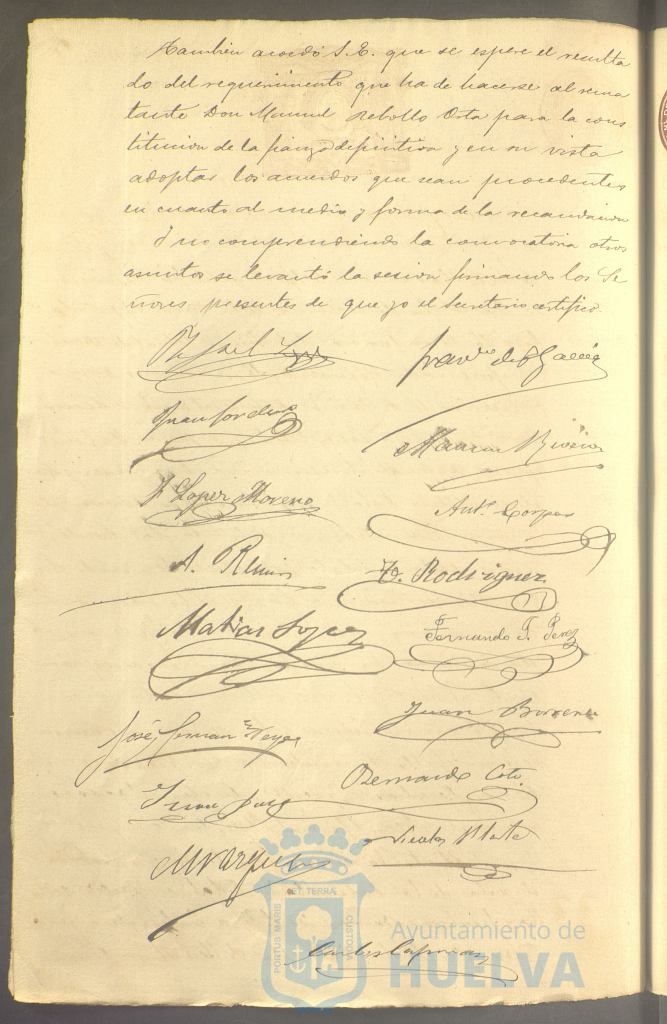 Tambien acordó S.E. que se espere el resulta
do del requerimiento que ha de hacerse al rema
tante Don Manuel Rebollo Orta para la cons
titucion de la fianza definitiva y en su vista
adoptar los acuerdos que sean procedentes
en cuanto al medio y forma de la recaudacion
Y no comprendiendo la convocatoria otros
asuntos se levantó la sesion firmando los Se
ñores presentes de que yo el Secretario certifico.
Rafael
de García
Juan
J Lopez Moreno
Antº Corpas
A.
T. Rodriguez
Matias Lopez
Fernando T. Perez
Juan
José German
Bernardo Coto
Juan
Nicolas
M Vazquez
Carlos
PORTUS MARIS ET TERRÆ CUSTODIA
Ayuntamiento de
HUELVA